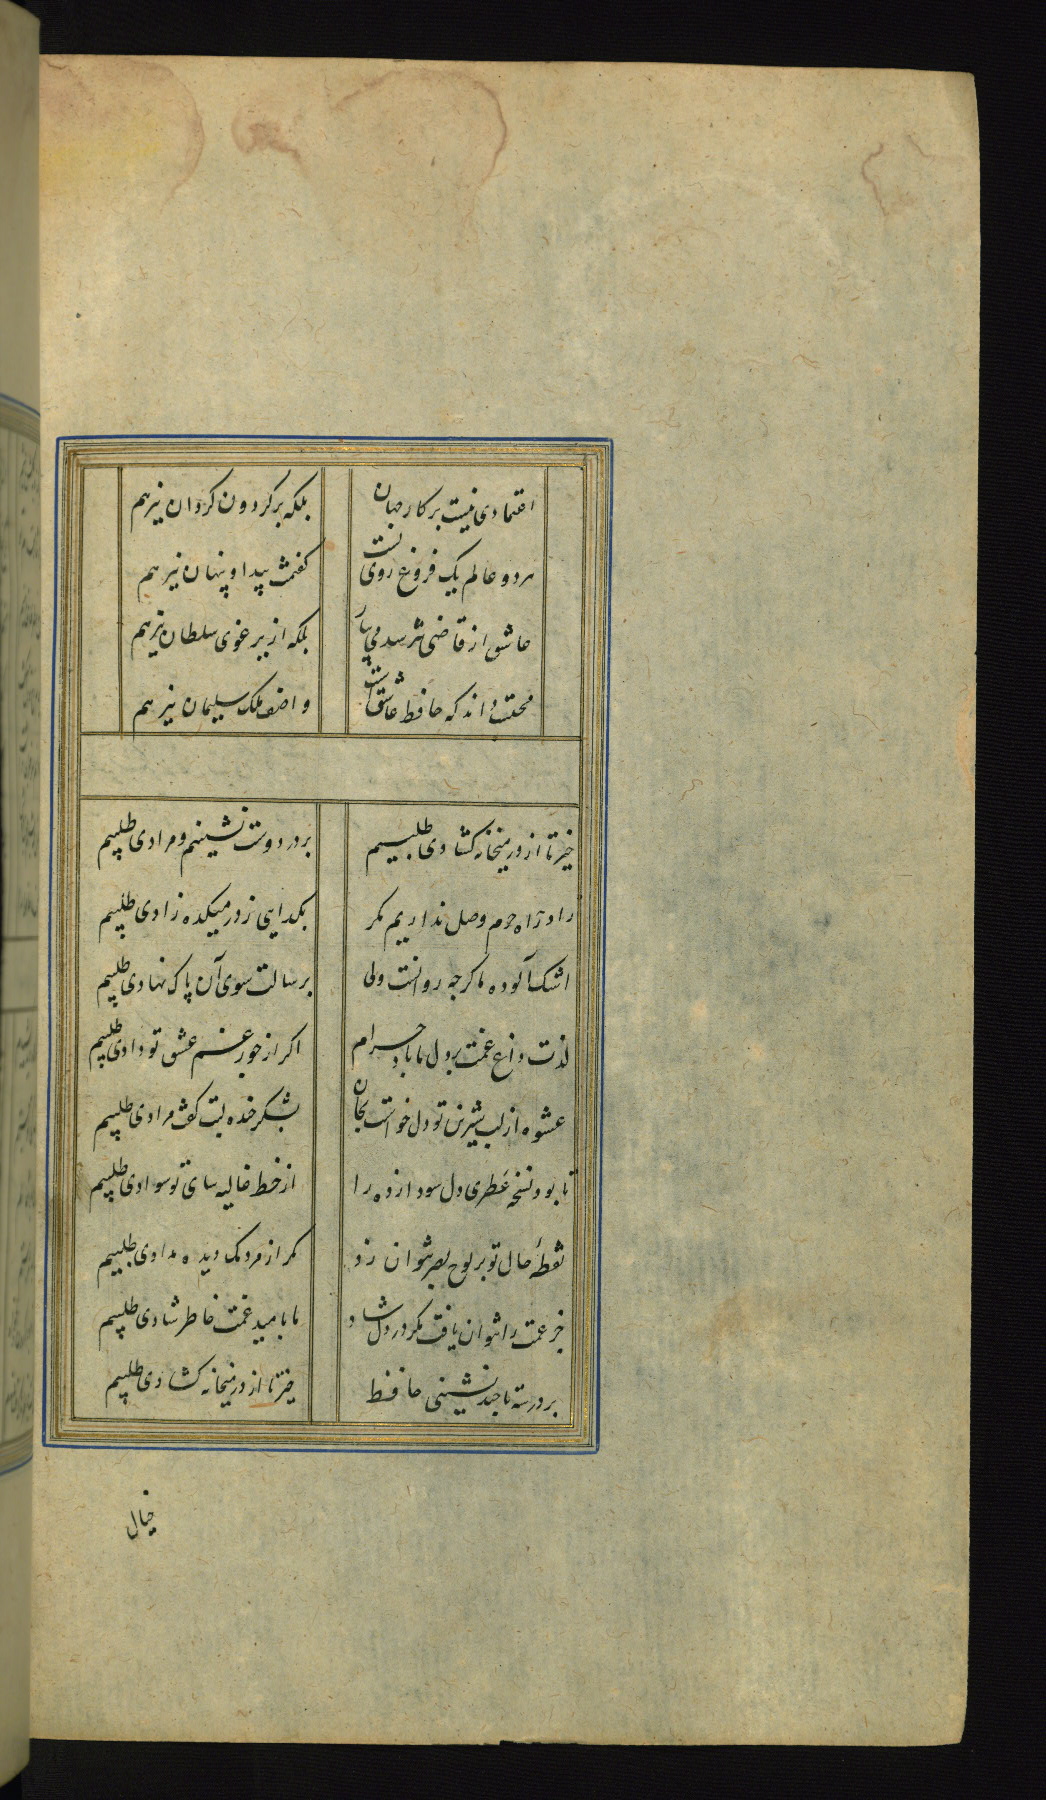 اعتمادی نیست بر کار جهان بلکه بر کردون کردان نیز هم
هر دو عالم یک فروغ روی تست کفتمت پیدا و پنهان نیز هم
عاشق از قاضی نترسد می بیار بلکه از یرغوی سلطان نیز هم
محتسب داند که حافظ عاشق است و اصف ملک سلیمان نیز هم
خیز تا از در میخانه کشادی طلبیم بر در دوست نشینیم و مرادی طلبیم
زاد راه حرم وصل نداریم مکر بکدایی ز در میکده زادی طلبیم
اشک آلوده ما کرچه روانست ولی برسالت سوی آن پاک نهادی طلبیم
لذت داغ غمت بر دل ما باد حرام اکر از جور غم عشق تو دادی طلبیم
عشوه از لب شیرین تو دل خواست بجان بشکر خنده لبت کفت مرادی طلبیم
تا بود نسخه عطری دل سودا زده را از خط غالیه سای تو سوادی طلبیم
نقطهٔ خال تو بر لوح بصر نتوان زد مکر از مردمک دیده مدادی طلبیم
جز غمت را نتوان یافت مکر در دل شاد ما بامید غمت خاطر شادی طلبیم
بر در تا چند نشینی حافظ خیز تا از در میخانه کشادی طلبیم
خیال